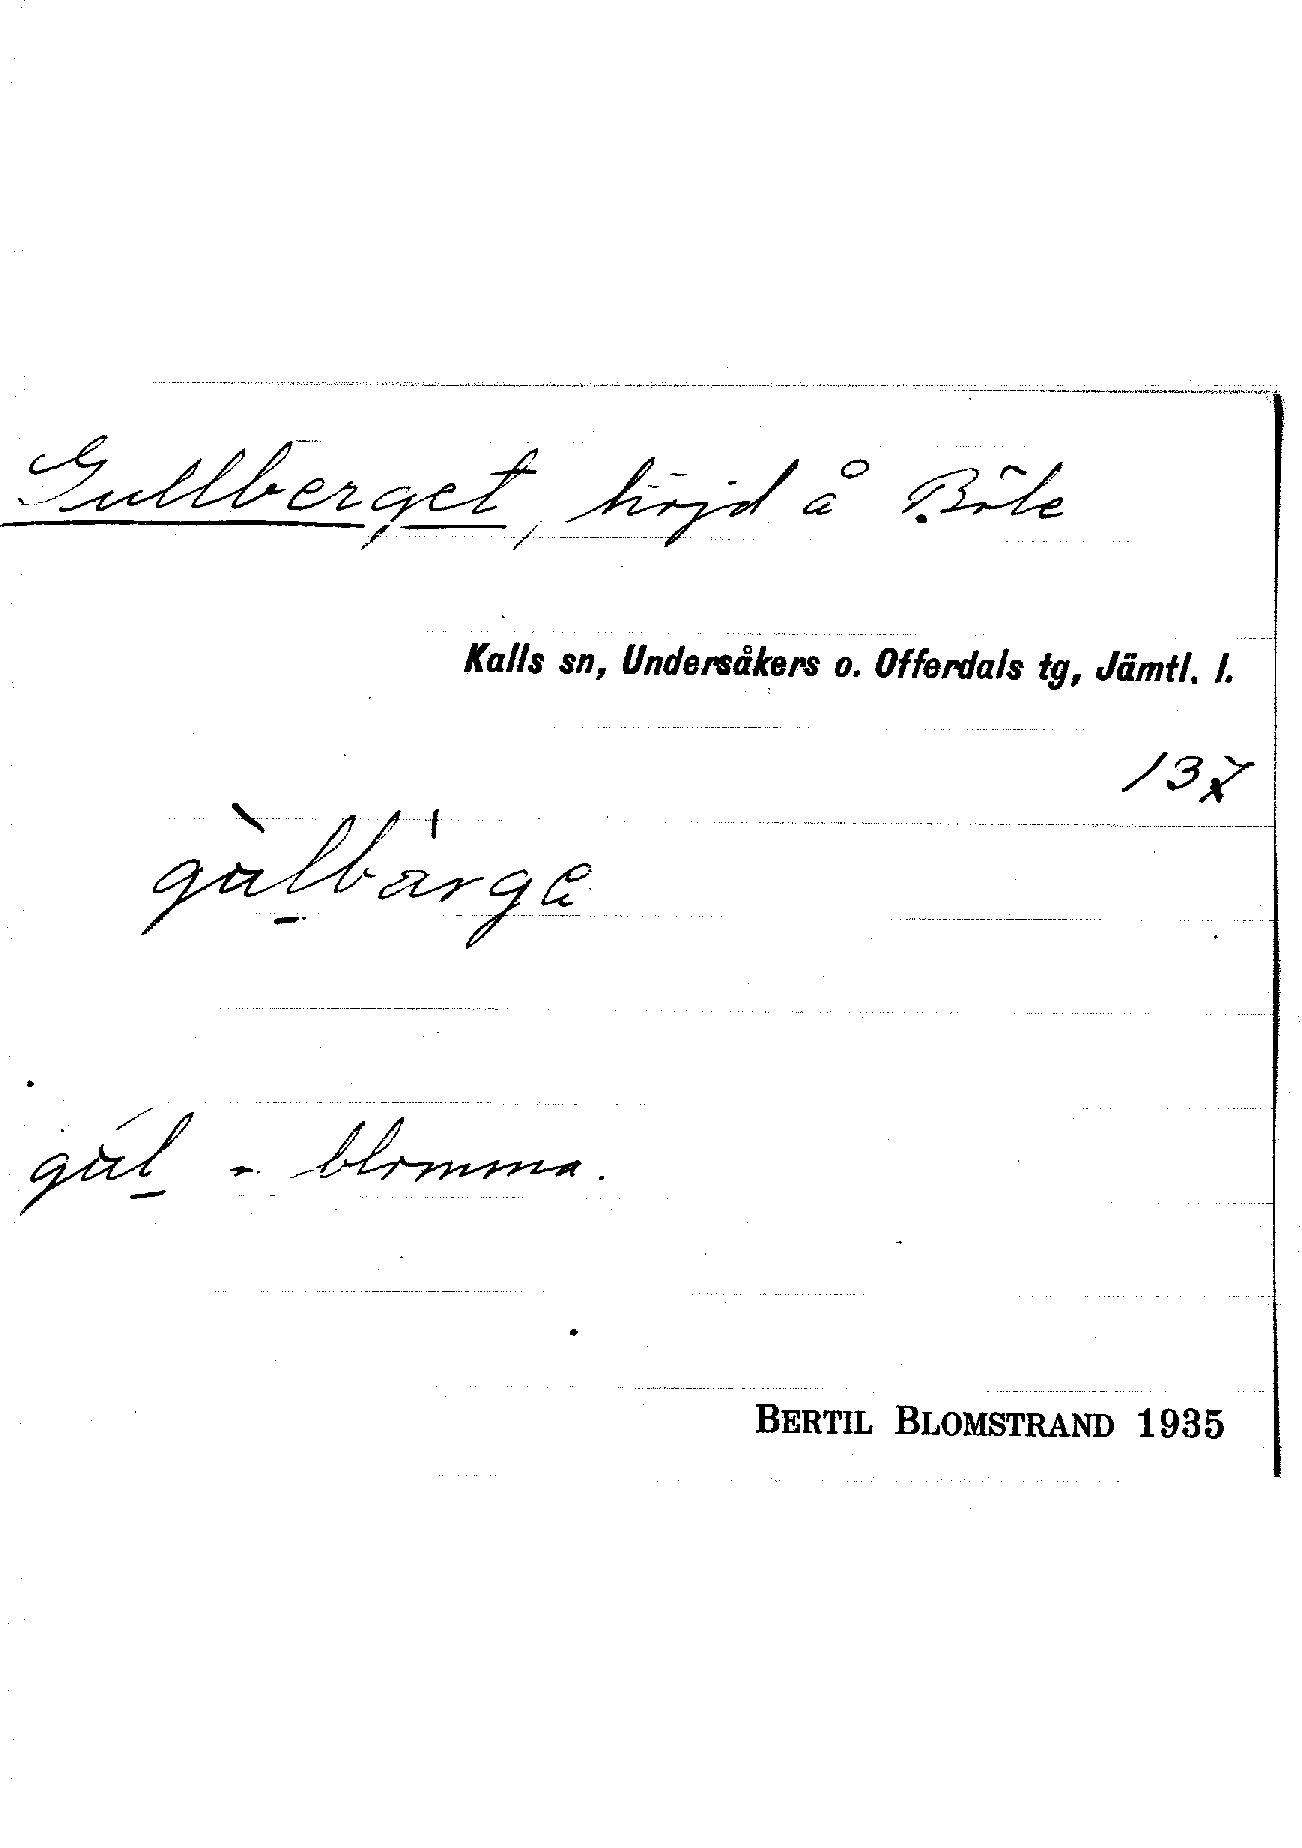 Gullberget, höjd å Böle
Kalls sn, Undersåkers o. Offerdals tg, Jämtl. l.
137
gùlbárga
gul = blomma.
BERTIL BLOMSTRAND 1935